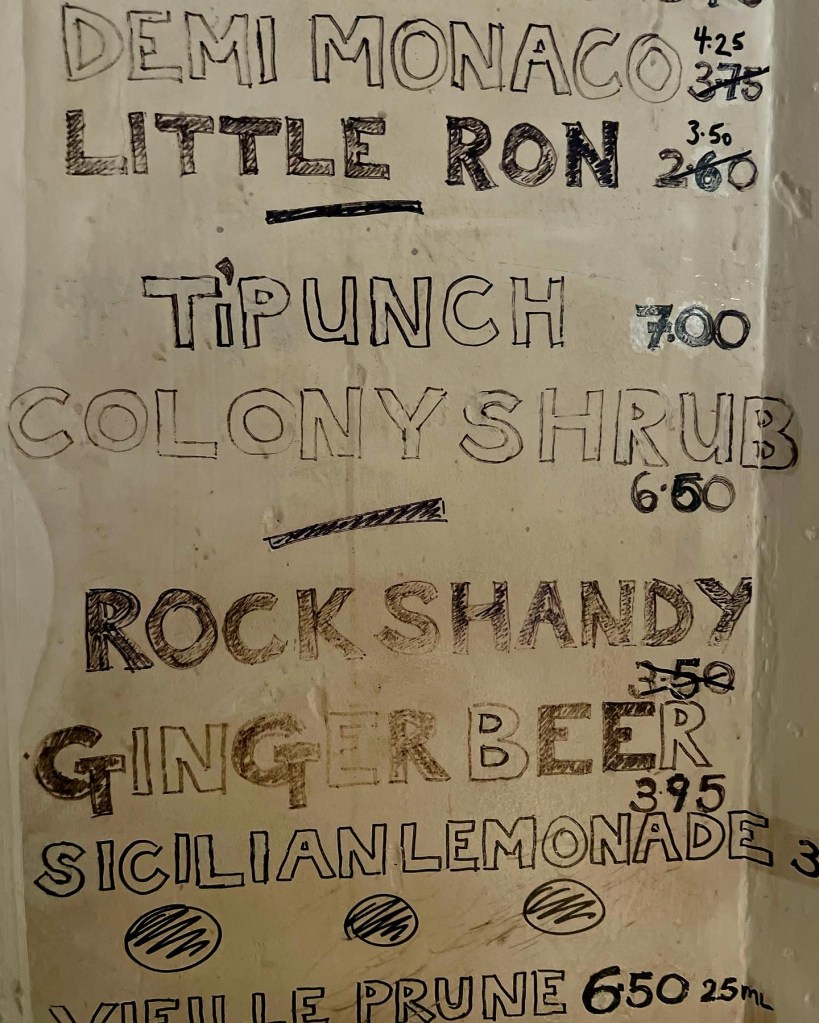 DEMI MONACO 4.25 3.75
LITTLE RON 3.50 2.60
TI'PUNCH 7.00
COLONY SHRUB
6.50
ROCK SHANDY
3.50
GINGER BEER
3.95
SICILIAN LEMONADE 3
VIEILLE PRUNE 6.50 25ML